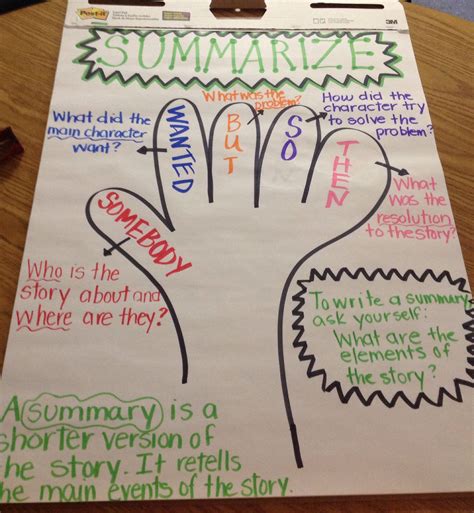 Post-it
3M
SUMMARIZE
What did the
main character
want?
WANTED
What was the
problem?
BUT
How did the
character try
to solve the
problem?
SO
THEN
What
was the
resolution
to the story?
SOMEBODY
Who is the
story about and
where are they?
To write a summary
ask yourself:
What are the
elements of
the story?
A summary is a
shorter version of
he story. It retells
he main events of the story.